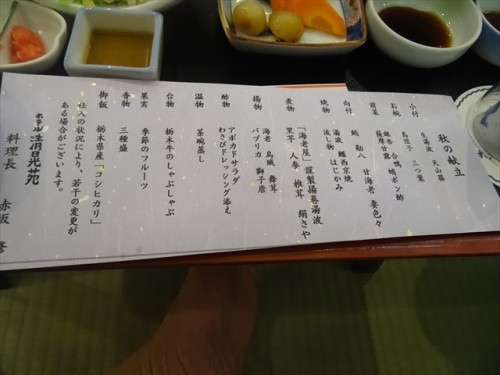 秋の献立
小付
生湯波 天山葵
お椀
鳥団子 三つ葉
前菜
銀杏 合鴨 蟹ポン酢
薩摩甘露 甘海老 妻色々
向付
鮪 勘八
焼物
湯波 鰆西京焼 はじかみ
煮物
「海老屋」謹製揚巻湯波
里芋 人参 椎茸 絹さや
揚物
海老 烏賊 舞茸
パプリカ 獅子唐
酢物
アボカドサラダ
わさびドレッシング添え
温物
茶碗蒸し
台物
栃木牛のしゃぶしゃぶ
果実
季節のフルーツ
香物
三種盛
御飯
栃木県産「コシヒカリ」
仕入の状況により、若干の変更が
ある場合がございます。
ホテル 清晃苑
料理長 赤坂